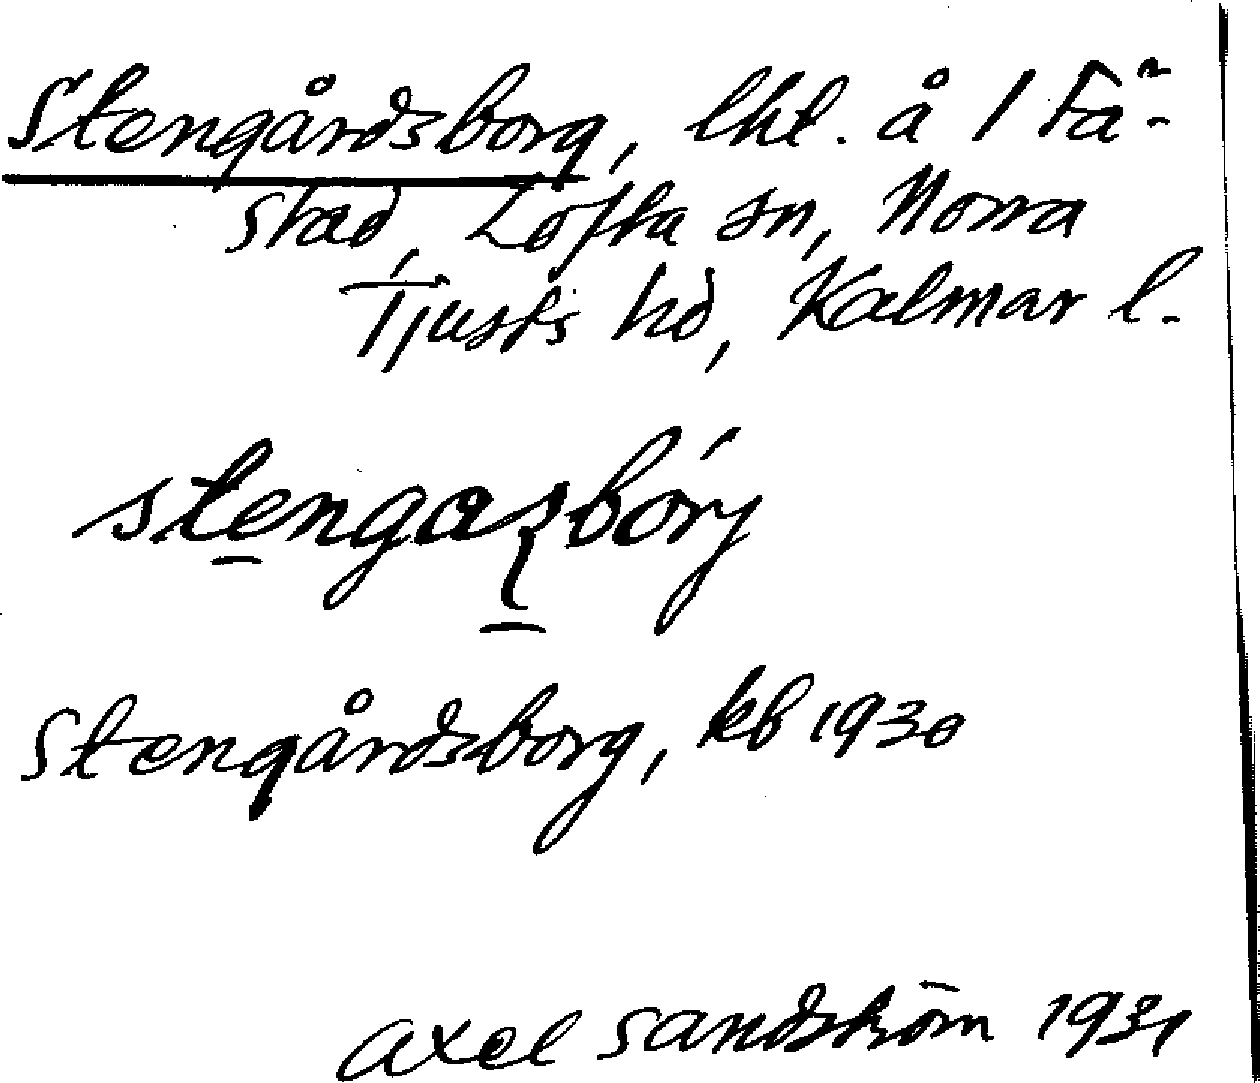 Stengårdsborg, lht. å 1 Fä-
stad, Lofta sn, Norra
Tjusts hd, Kalmar l.
Stengårdsborg, kb 1930
Axel Sandström 1931